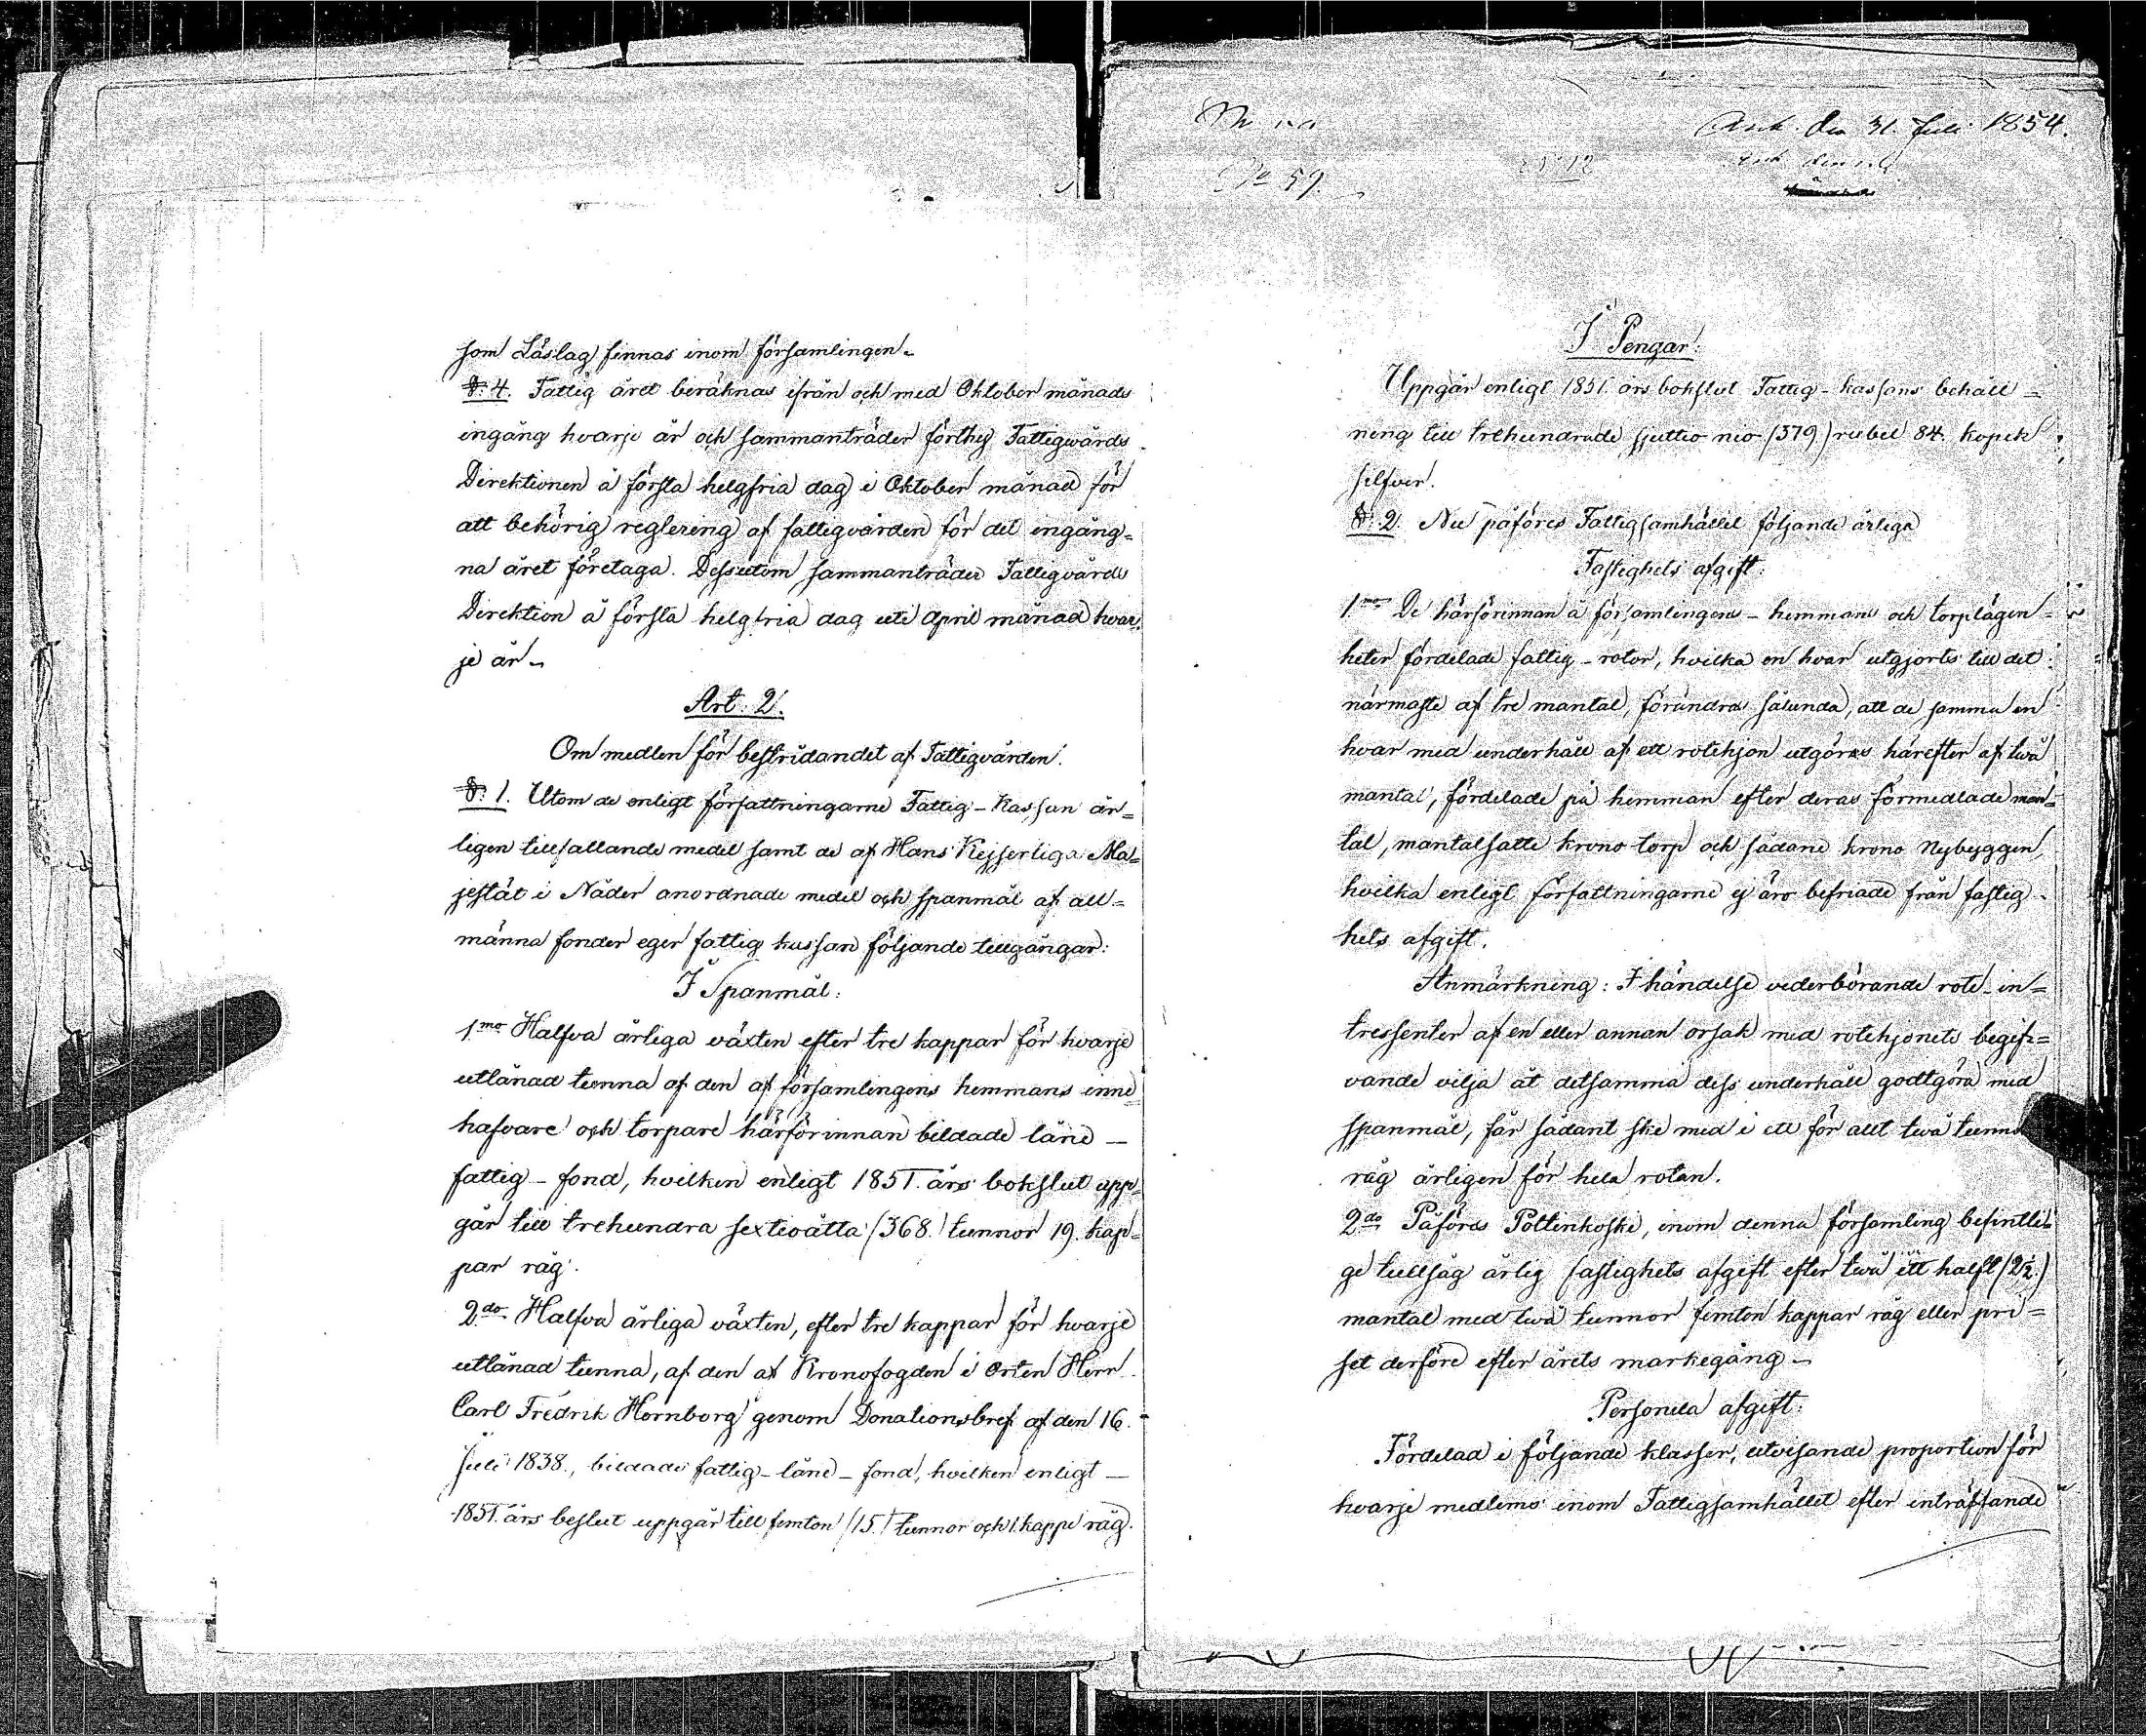 som Låslag finnas inom församlingen.
§. 4. Fattig året beräknas ifrån och med Oktober månads
ingång hvarje år och sammanträder förthy Fattigwårds
Direktionen å första helgfria dag i Oktober månad för
att behörig reglering af fattigvården för det ingång=
na året företaga. Dessutom sammanträder Fattigvårds
Direktion å första helgfria dag uti April månad hvar=
je år.
Art. 2.
Om medlen för bestridandet af Fattigvården.
§. 1. Utom de enligt författningarne Fattig-Kassan år=
ligen tillfallande medel samt de af Hans Kejserliga Ma=
jestät i Nåder anordnade medel och spanmål af all=
männa fonder eger fattig kassan följande tillgångar:
I Spanmål:
1mo Halfva årliga växten efter tre kappar för hvarje
utlånad tunna af den af församlingens hemmans inne=
hafvare och torpare härförinnan bildade låne-
fattig-fond, hvilken enligt 1851. års bokslut upp=
går till trehundra sextioåtta (368.) tunnor 19. kap=
par råg.
2do Halfva årliga växten, efter tre kappar för hvarje
utlånad tunna, af den af Kronofogden i orten Herr
Carl Fredrik Hornborg genom Donationsbref af den 16.
Juli 1838., bildade fattig-låne-fond, hvilken enligt
1851. års beslut uppgår till femton (15.) tunnor och 1. kappe råg.
Ank. den 31. Juli 1854.
No 59.
I Pengar:
Uppgår enligt 1851. års bokslut Fattig-kassans behåll=
ning till trehundrade sjuttio nio (379) rubel 84. kopek
silfver.
§. 2. Nu påföres Fattigsamhället följande årliga
Fastighets afgift:
1mo De härförinnan å församlingens hemmans och torplägen=
heter fördelade fattig-rotor, hvilka en hvar utgjorts till det
närmaste af tre mantal, förändras sålunda, att de samma en
hvar med underhåll af ett rotehjon utgöras härefter af två
mantal, fördelade på hemman efter deras förmedlade man=
tal, mantalsatte krono torp och sådane krono Nybyggen,
hvilka enligt författningarne ej äro befriade från fastig-
hets afgift.
Anmärkning: I händelse vederbörande rote-in=
tressenter af en eller annan orsak med rotehjonets begif=
vande vilja åt detsamma dess underhåll godtgöra med
spanmål, får sådant ske med i ett för allt två tunnor
råg årligen för hela rotan.
2do Påföres Pottinkoski, inom denna församling befintli-
ge tullsåg årlig fastighets afgift efter två ett halft (2½.)
mantal med två tunnor femton kappar råg eller pri=
set derföre efter årets markegång.
Personela afgift:
Fördelad i följande klasser, utvisande proportion för
hvarje medlems inom Fattigsamhället efter inträffande